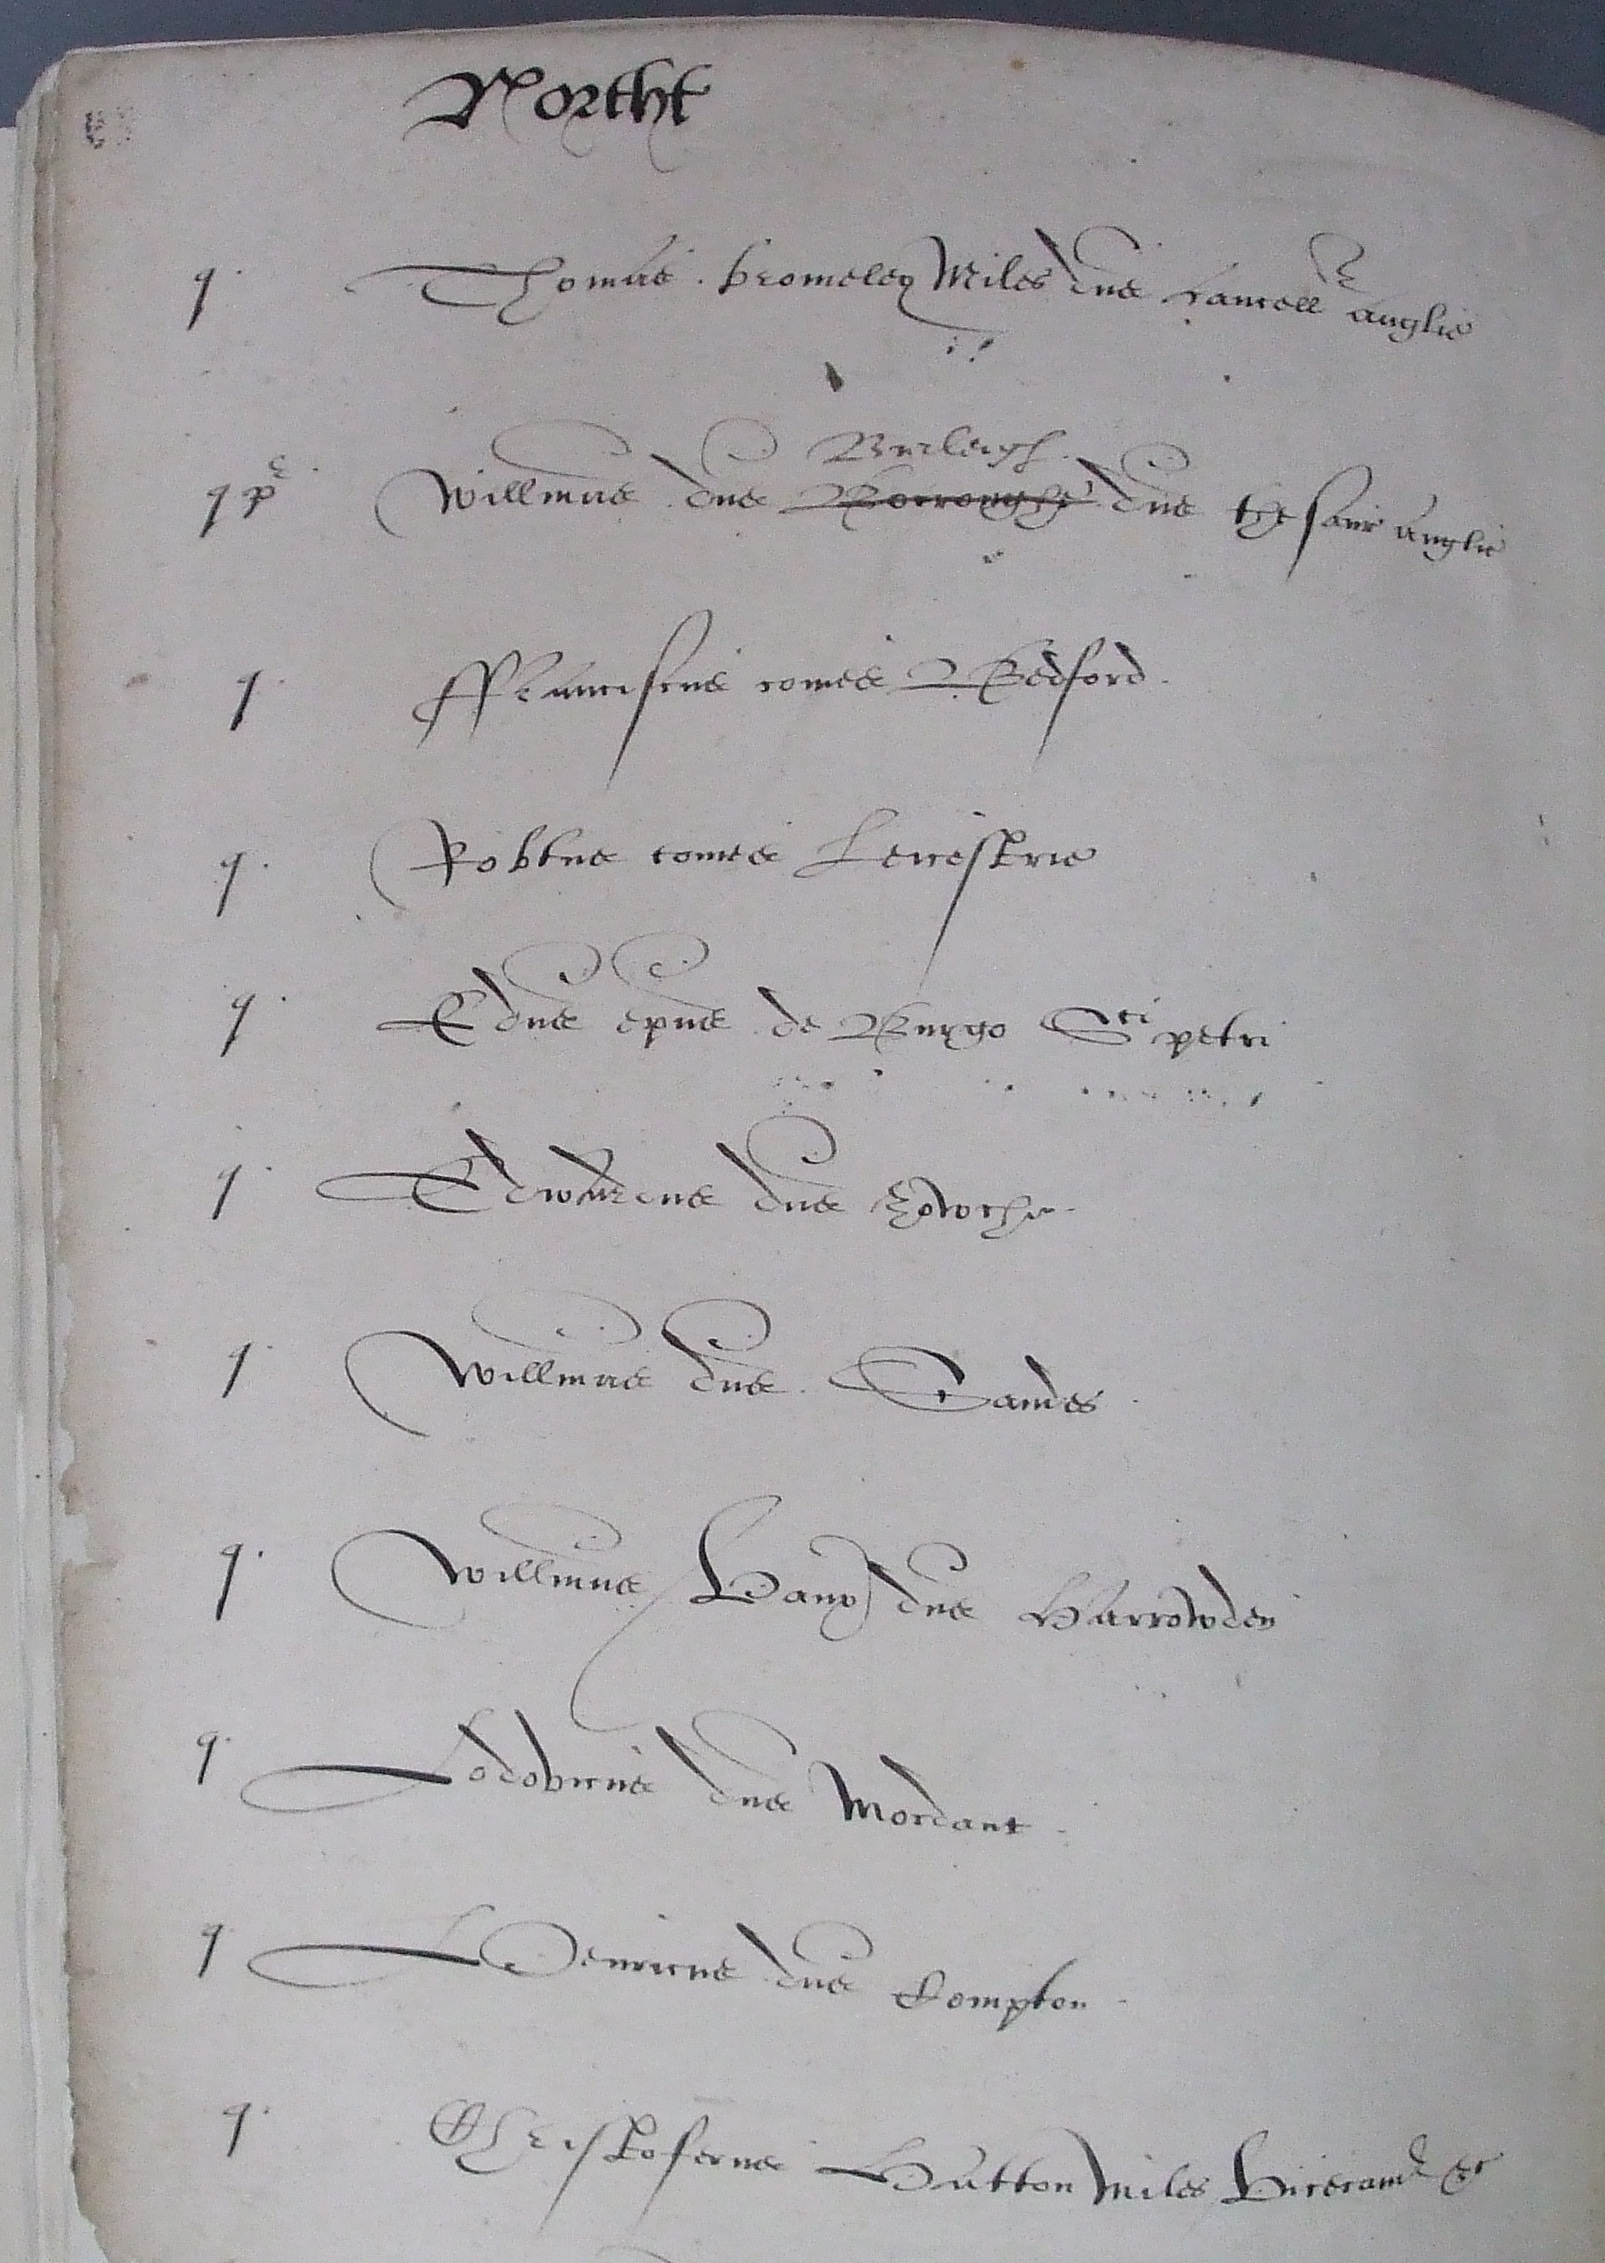 Northt
q Thomas Bromeley Miles dns Cancell Anglie
Burleigh
q pr Willmus dns Borroughe dns thesaur Anglie
q ffranciscus comes Bedford
q Robtus comes Leicestrie
q E dns epus de Burgo Sci petri
q Edwardus dns Zowche
q Willmus dns Sandes
q Willmus Vaux dns Harrowden
q Lodovicus dns Mordant
q Henricus dns Compton
q Christoferus Hatton Miles vicecam &c